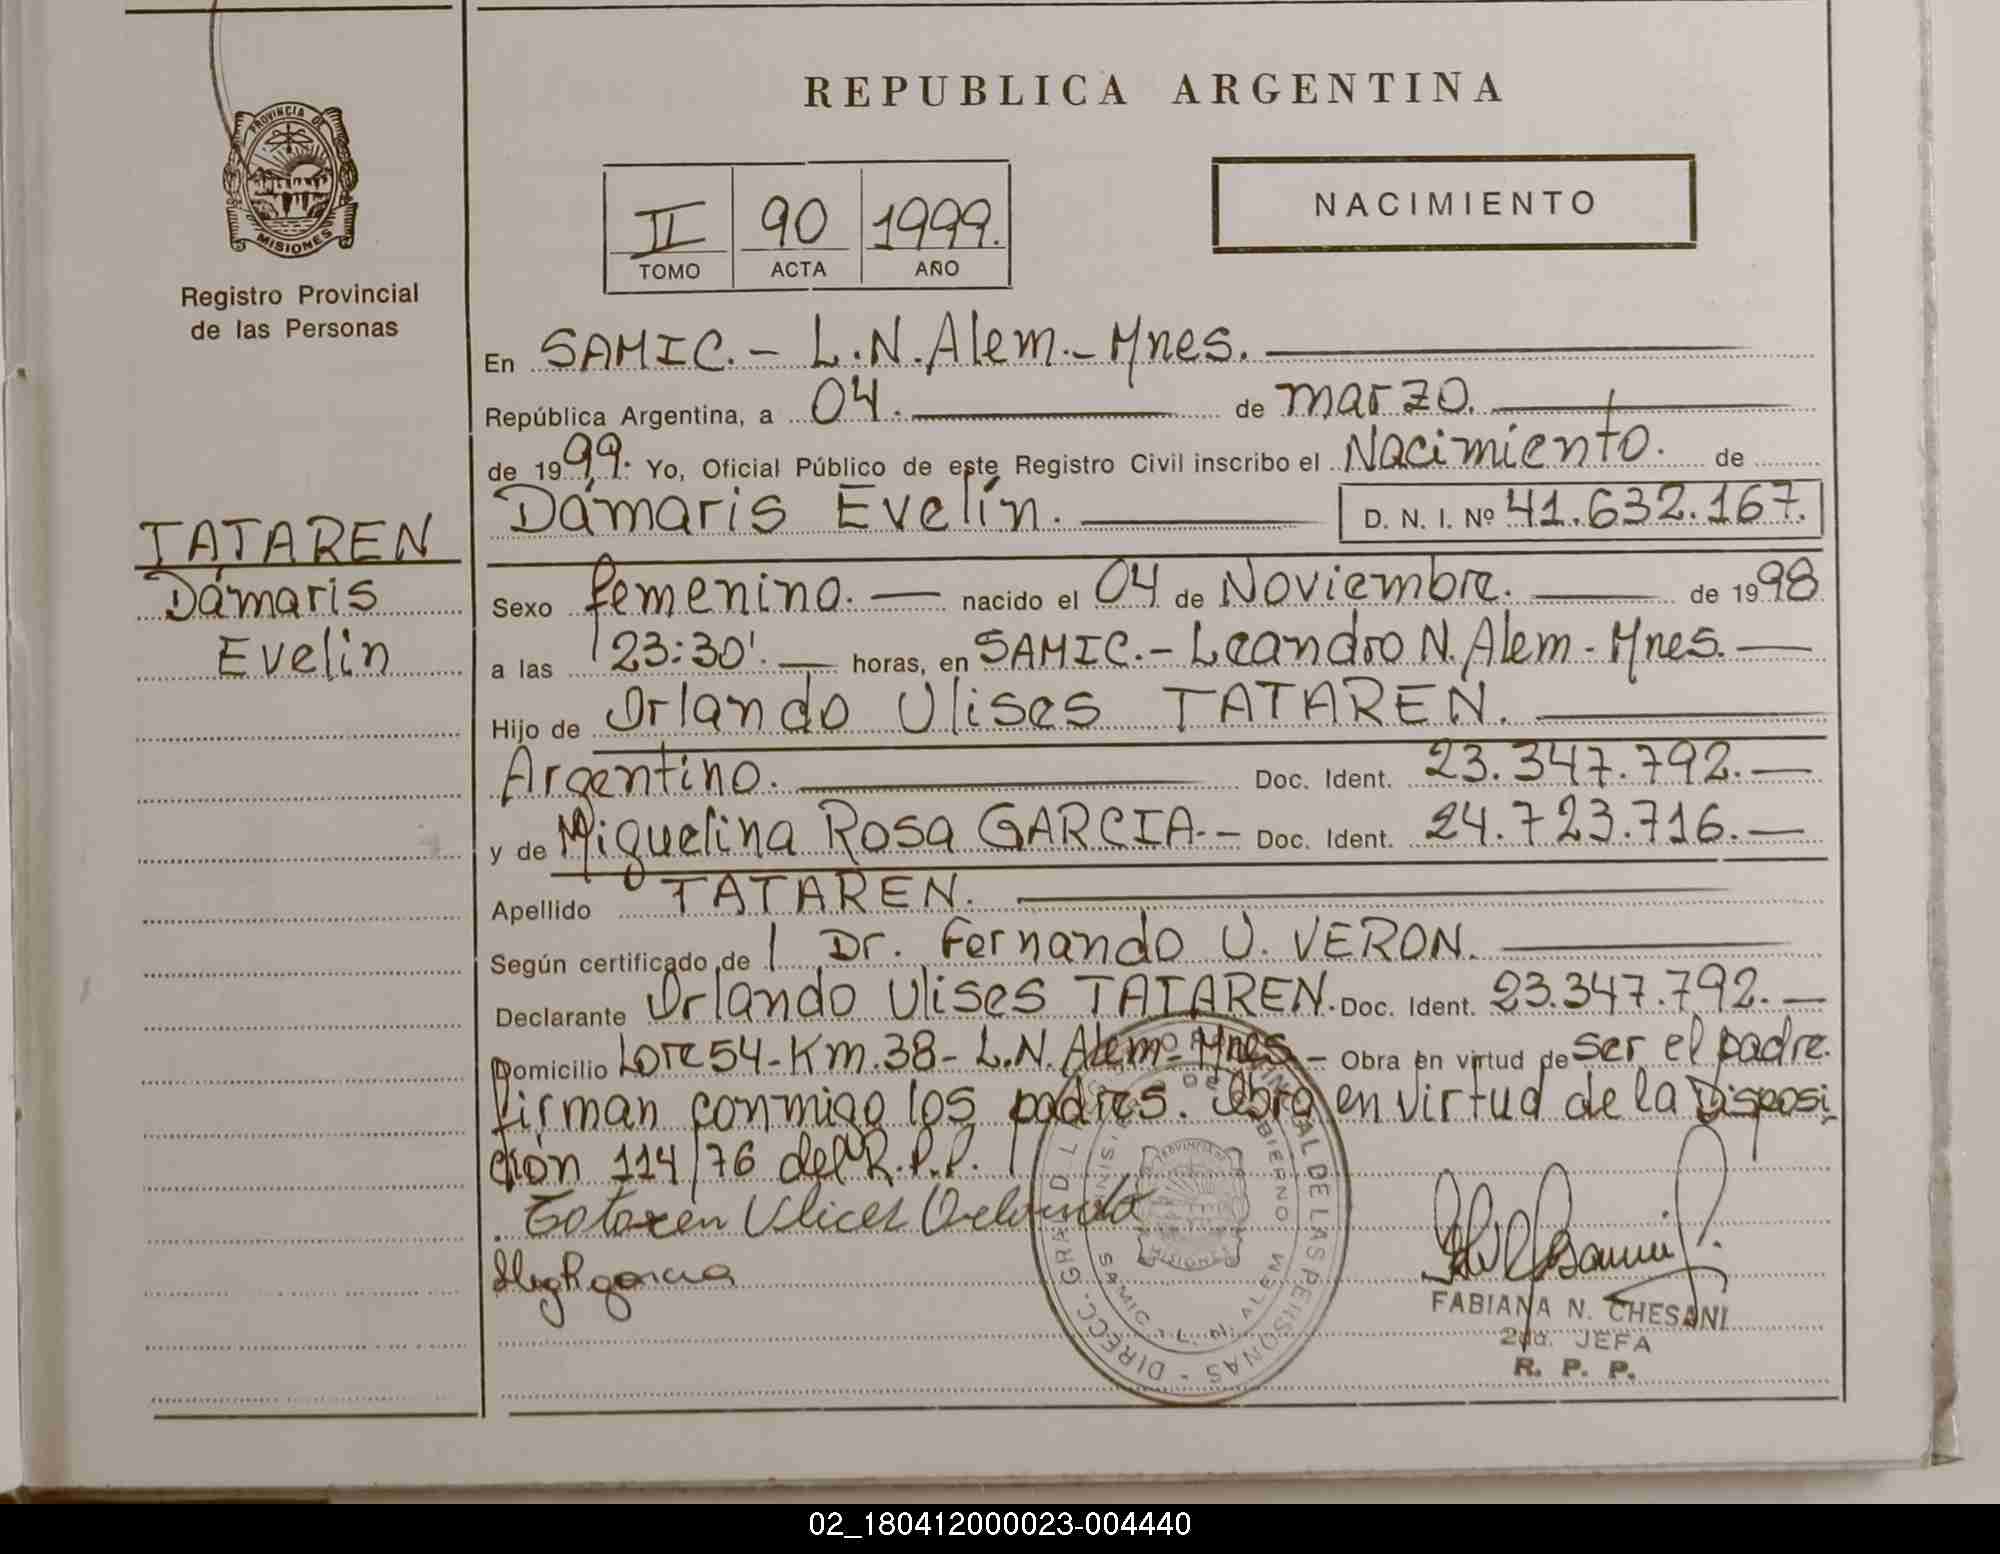 REPUBLICA ARGENTINA
PROVINCIA DE
MISIONES
Registro Provincial
de las Personas
II 90 1999.
TOMO ACTA AÑO
NACIMIENTO
En SAMIC.- L.N.Alem.- Mnes.
República Argentina, a 04. de marzo.
de 1999. Yo, Oficial Público de este Registro Civil inscribo el Nacimiento. de
Dámaris Evelín. D. N. I. Nº 41.632.167.
TATAREN
Dámaris
Evelín
Sexo femenino. nacido el 04 de Noviembre. de 1998
a las 23:30'. horas, en SAMIC.- Leandro N. Alem - Mnes.
Hijo de Orlando Ulises TATAREN.
Argentino. Doc. Ident. 23.347.792.
y de Miguelina Rosa GARCIA.- Doc. Ident. 24.723.716.
Apellido TATAREN.
Según certificado de Dr. Fernando U. VERON.
Declarante Orlando Ulises TATAREN. Doc. Ident. 23.347.792.
Domicilio Lote 54-Km.38- L.N. Alem- Mnes. Obra en virtud de ser el padre.
firman conmigo los padres. Obra en virtud de la Disposi
ción 114/76 del R.P.P.
Tataren Ulices Orlando
garcia
FABIANA N. CHESANI
2da. JEFA
R. P. P.
DIRECC. GRAL. DEL REGISTRO PROVINCIAL DE LAS PERSONAS
SAMIC - L. N. ALEM
MISIONES
02_180412000023-004440